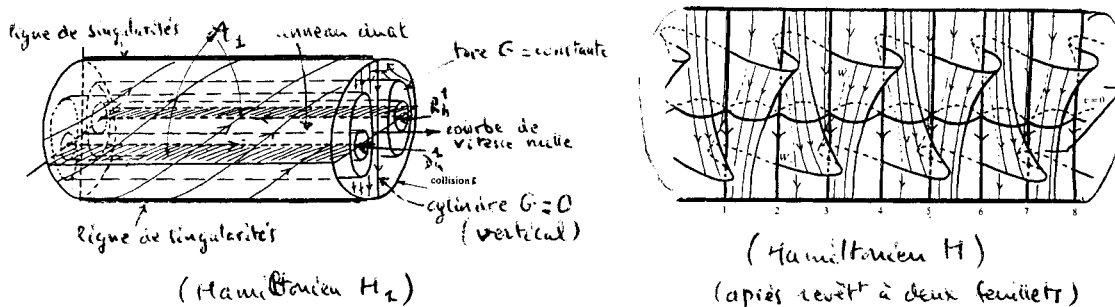 ligne de singularités
A1
anneau
tore G = constante
courbe de
vitesse nulle
collisions
cylindre G = 0
(vertical)
ligne de singularités
(Hamiltonien H1)
W
W
1 2 3 4 5 6 7 8
(Hamiltonien H)
(après revêt^t à deux feuillets)